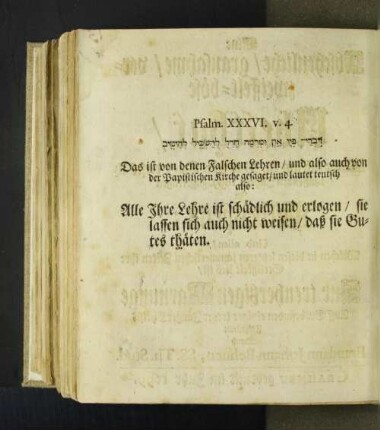 Psalm. XXXVI. v. 4
דברי פיו און ומרמה חדל להשכיל להיטיב
Das ist von denen Falschen Lehren / und also auch von
der Papistischen Kirche gesaget / und lautet teutsch
also:
Alle Ihre Lehre ist schädlich und erlogen / sie
lassen sich auch nicht weisen / daß sie Gu-
tes thäten.